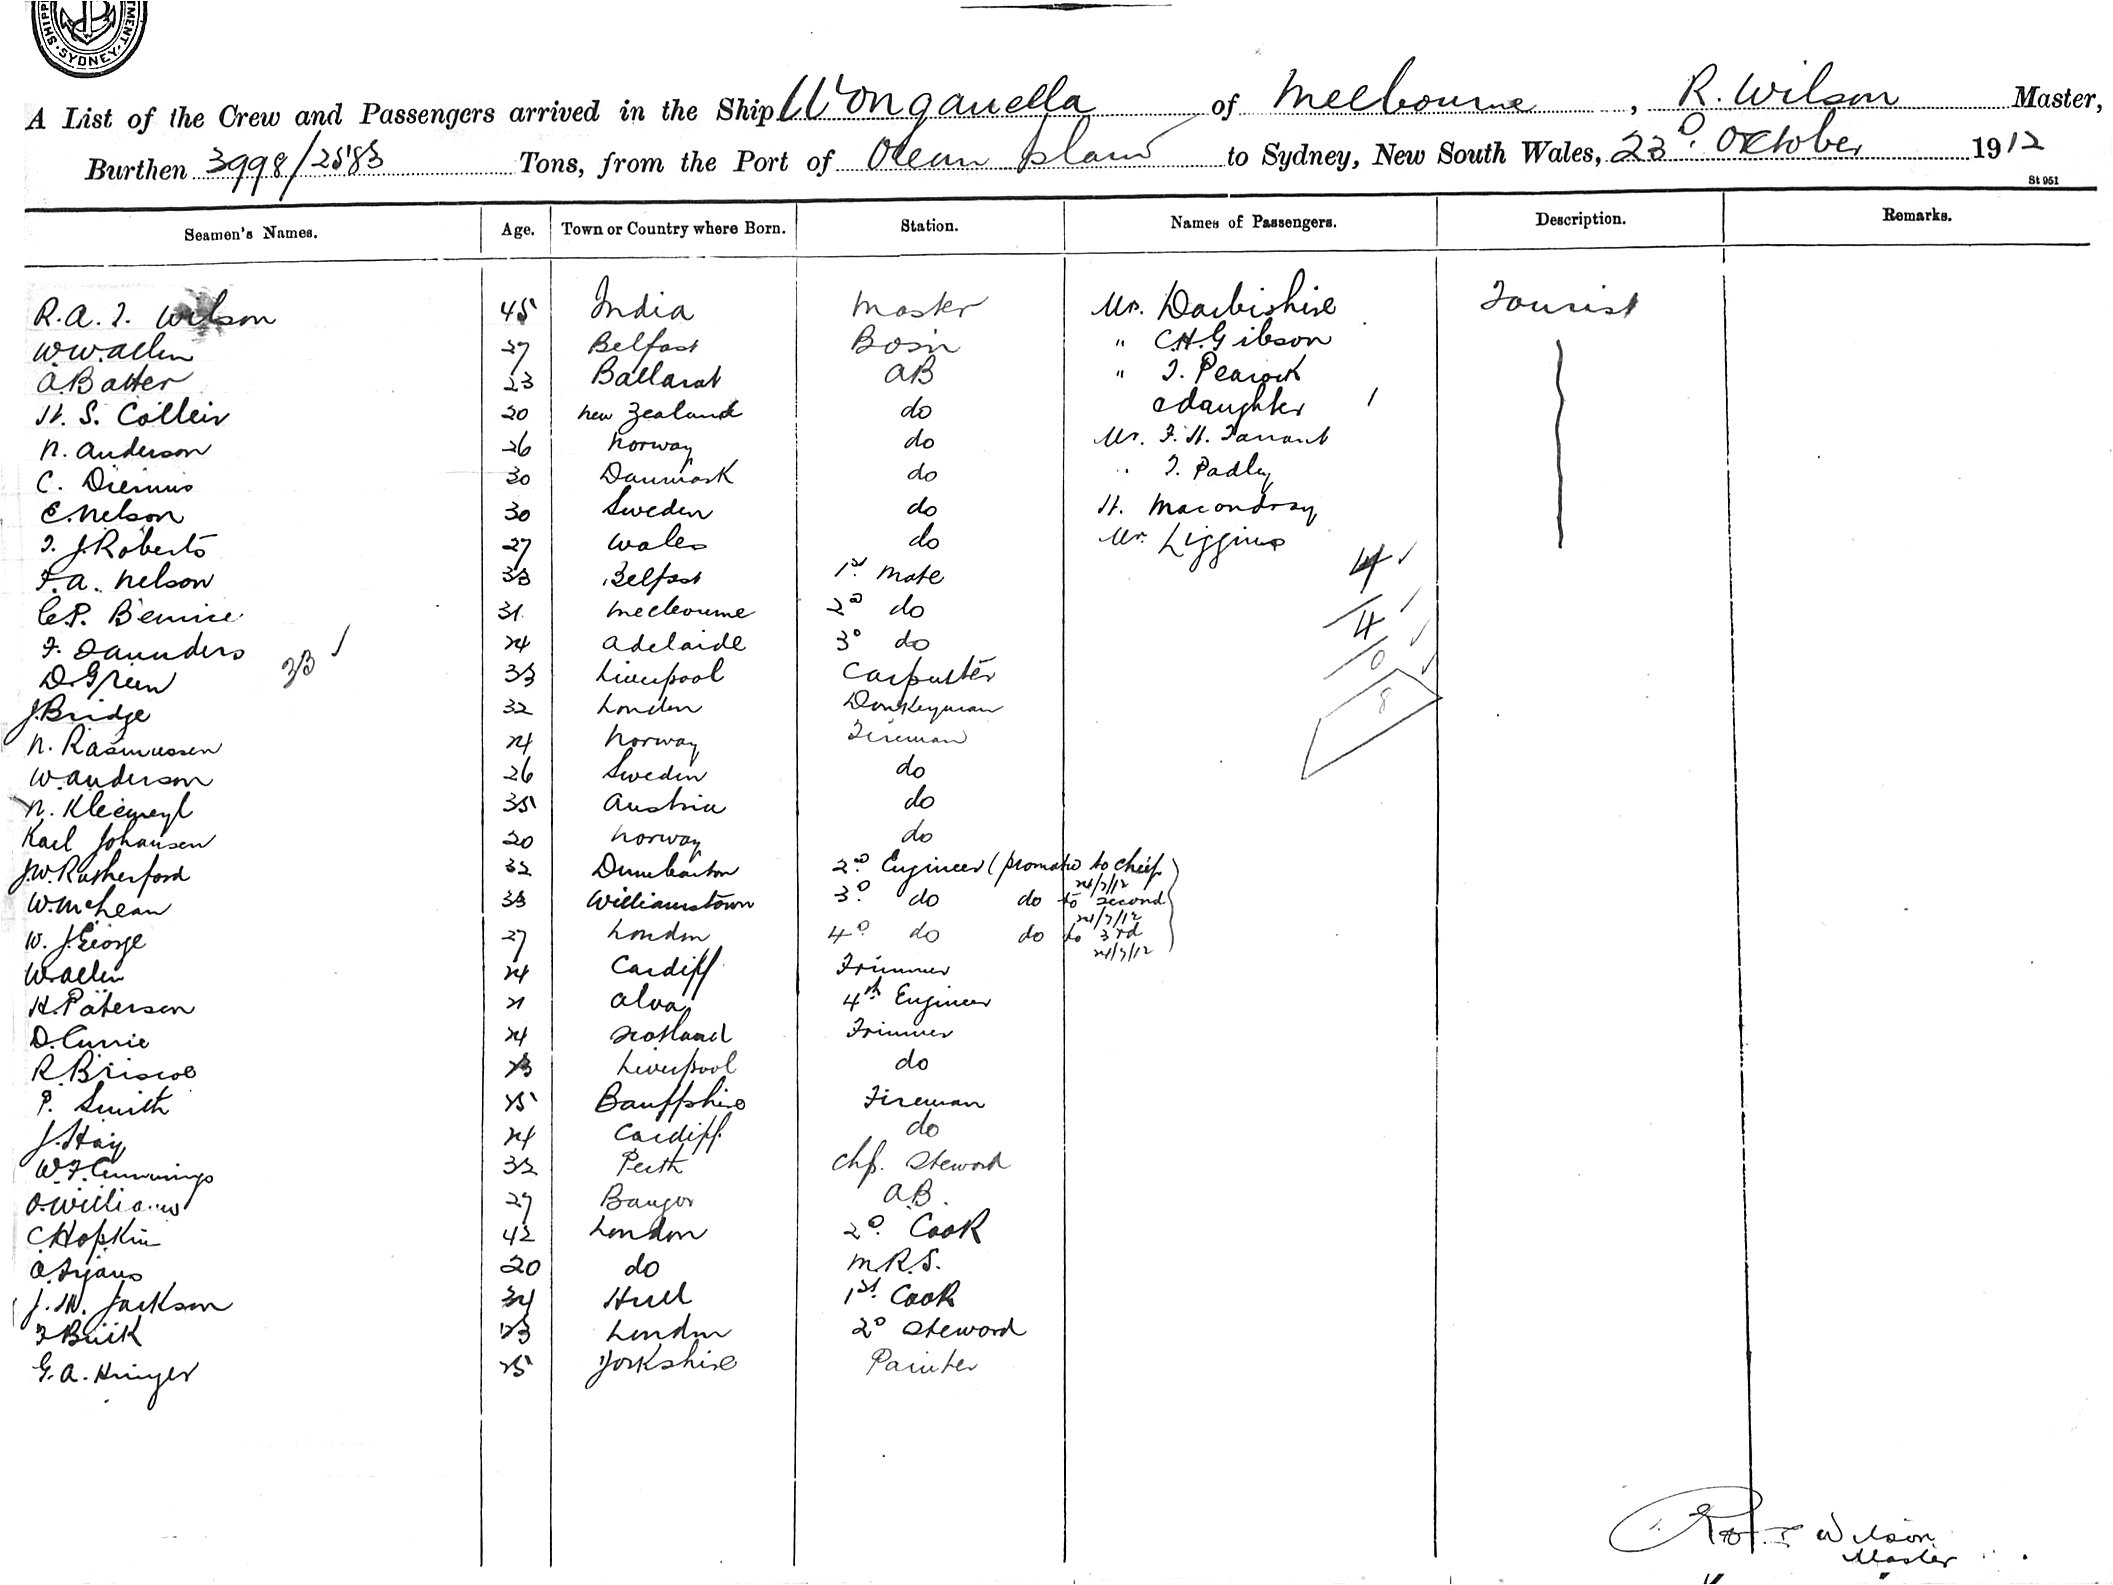 SYDNEY
A List of the Crew and Passengers arrived in the Ship Wonganella of Melbourne, R. Wilson Master,
Burthen 3998/2583 Tons, from the Port of Ocean Island to Sydney, New South Wales, 23D October 1912
St 951
Seamen's Names. Age. Town or Country where Born. Station. Names of Passengers. Description. Remarks.
R.A.J. Wilson 45 India Master Mr. Darbishire Tourist
W.W. Allen 27 Belfast Bosn " C.H. Gibson
A. Batter 23 Ballarat AB " J. Peacock
H. S. Colleir 20 New Zealand do & daughter 1
N. Anderson 26 Norway do Mr. F. H. Tarrant
C. 30 Danmark do " J. Padley
E. Nelson 30 Sweden do H. Macondray
J. J. Roberts 27 Wales do Mr. Liggins
F.A. Nelson 33 Belfast 1st Mate 4
C.P. Bernice 31 Melbourne 2D do 4
F. Saunders 24 Adelaide 3D do 0
D. Green 33 33 Liverpool Carpenter
J. Bridge 32 London Donkeyman 8
N. Rasmussen 24 Norway Fireman
W. Anderson 26 Sweden do
N. 35 Austria do
Karl Johansen 20 Norway do
J.W. Rutherford 32 Dumbarton 2D Engineer (promoted to chief
24/7/12
W. McLean 33 Williamstown 3D do do to second
24/7/12
W. J. George 27 London 4D do do to 3rd
24/7/12
W. Allen 24 Cardiff Trimmer
H. Paterson 21 Alva 4th Engineer
D. Currie 24 Scotland Trimmer
R. Briscoe 23 Liverpool do
P. Smith 25 Banffshire Fireman
J. Hay 24 Cardiff do
W.F. Cummings 32 Perth Chf. Steward
O. Williams 27 Bangor A.B.
C. Hopkin 42 London 2D Cook
A. 20 do M.R.S.
J. M. Jackson 34 Hull 1st Cook
F. Buik 23 London 2D Steward
G. A. 25 Yorkshire Painter
Wilson
Master